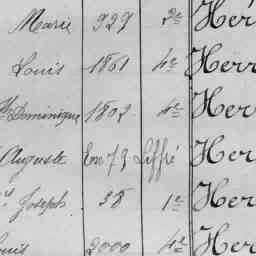 Marie 929 2e Her
Louis 1861 4e Herr
Dominique 1802 4e Her
Auguste En 73 Liffré Her
Joseph 38 1e Her
ouis 2000 4e Her